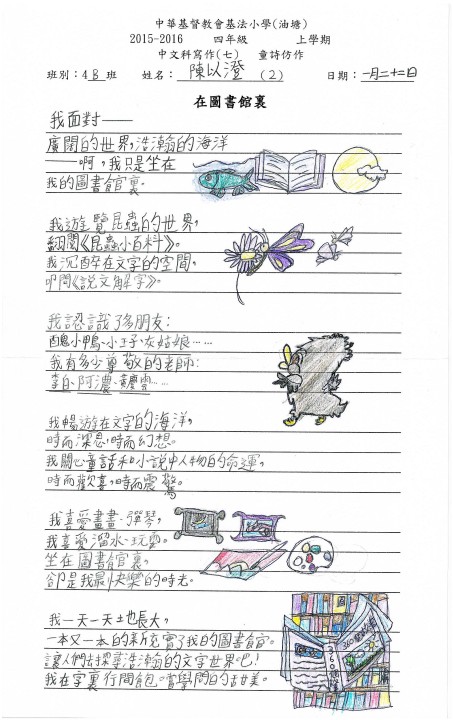 中華基督教會基法小學(油塘)
2015-2016 四年級 上學期
中文科寫作(七) 童詩仿作
班別：4B班 姓名：陳以澄(2) 日期：一月二十二日
在圖書館裏
我面對——
廣闊的世界，浩瀚的海洋
——啊，我只是坐在
我的圖書館裏。
我遊覽昆蟲的世界，
翻閱《昆蟲小百科》。
我沉醉在文字的空間，
叩問《說文解字》。
我認識了多朋友：
醜小鴨、小王子、灰姑娘……
我有多少尊敬的老師：
李白、阿濃、黃慶雲……
我暢游在文字的海洋，
時而深思，時而幻想。
我關心童話和小說中人物的命運，
時而歡喜，時而震驚。
我喜愛畫畫、彈琴，
我喜愛溜冰、玩雪。
坐在圖書館裏，
卻是我最快樂的時光。
我一天一天地長大，
一本又一本的新充實了我的圖書館。
讓人們去探索浩瀚的文字世界吧！
我在字裏行間飽嘗學問的甘美。